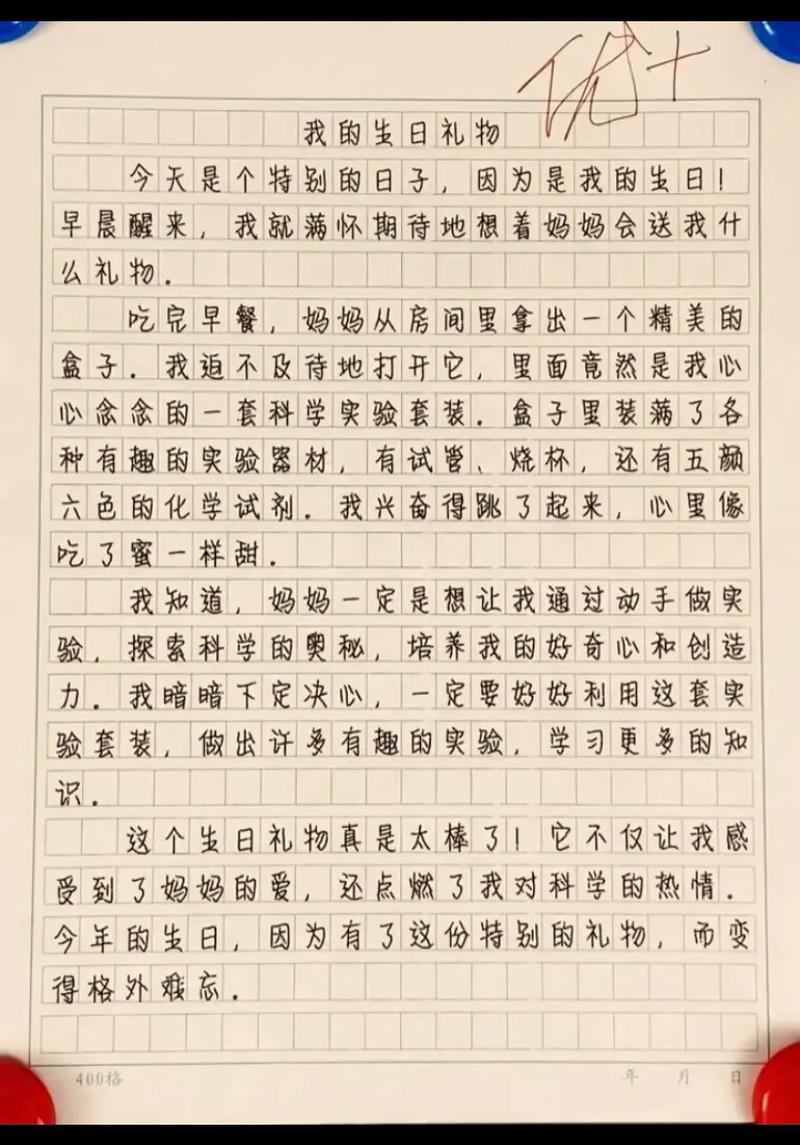 优+
我的生日礼物
今天是个特别的日子，因为是我的生日！
早晨醒来，我就满怀期待地想着妈妈会送我什
么礼物．
吃完早餐，妈妈从房间里拿出一个精美的
盒子．我迫不及待地打开它，里面竟然是我心
心念念的一套科学实验套装．盒子里装满了各
种有趣的实验器材，有试管、烧杯，还有五颜
六色的化学试剂．我兴奋得跳了起来，心里像
吃了蜜一样甜．
我知道，妈妈一定是想让我通过动手做实
验，探索科学的奥秘，培养我的好奇心和创造
力．我暗暗下定决心，一定要好好利用这套实
验套装，做出许多有趣的实验，学习更多的知
识．
这个生日礼物真是太棒了！它不仅让我感
受到了妈妈的爱，还点燃了我对科学的热情．
今年的生日，因为有了这份特别的礼物，而变
得格外难忘．
400格 年 月 日